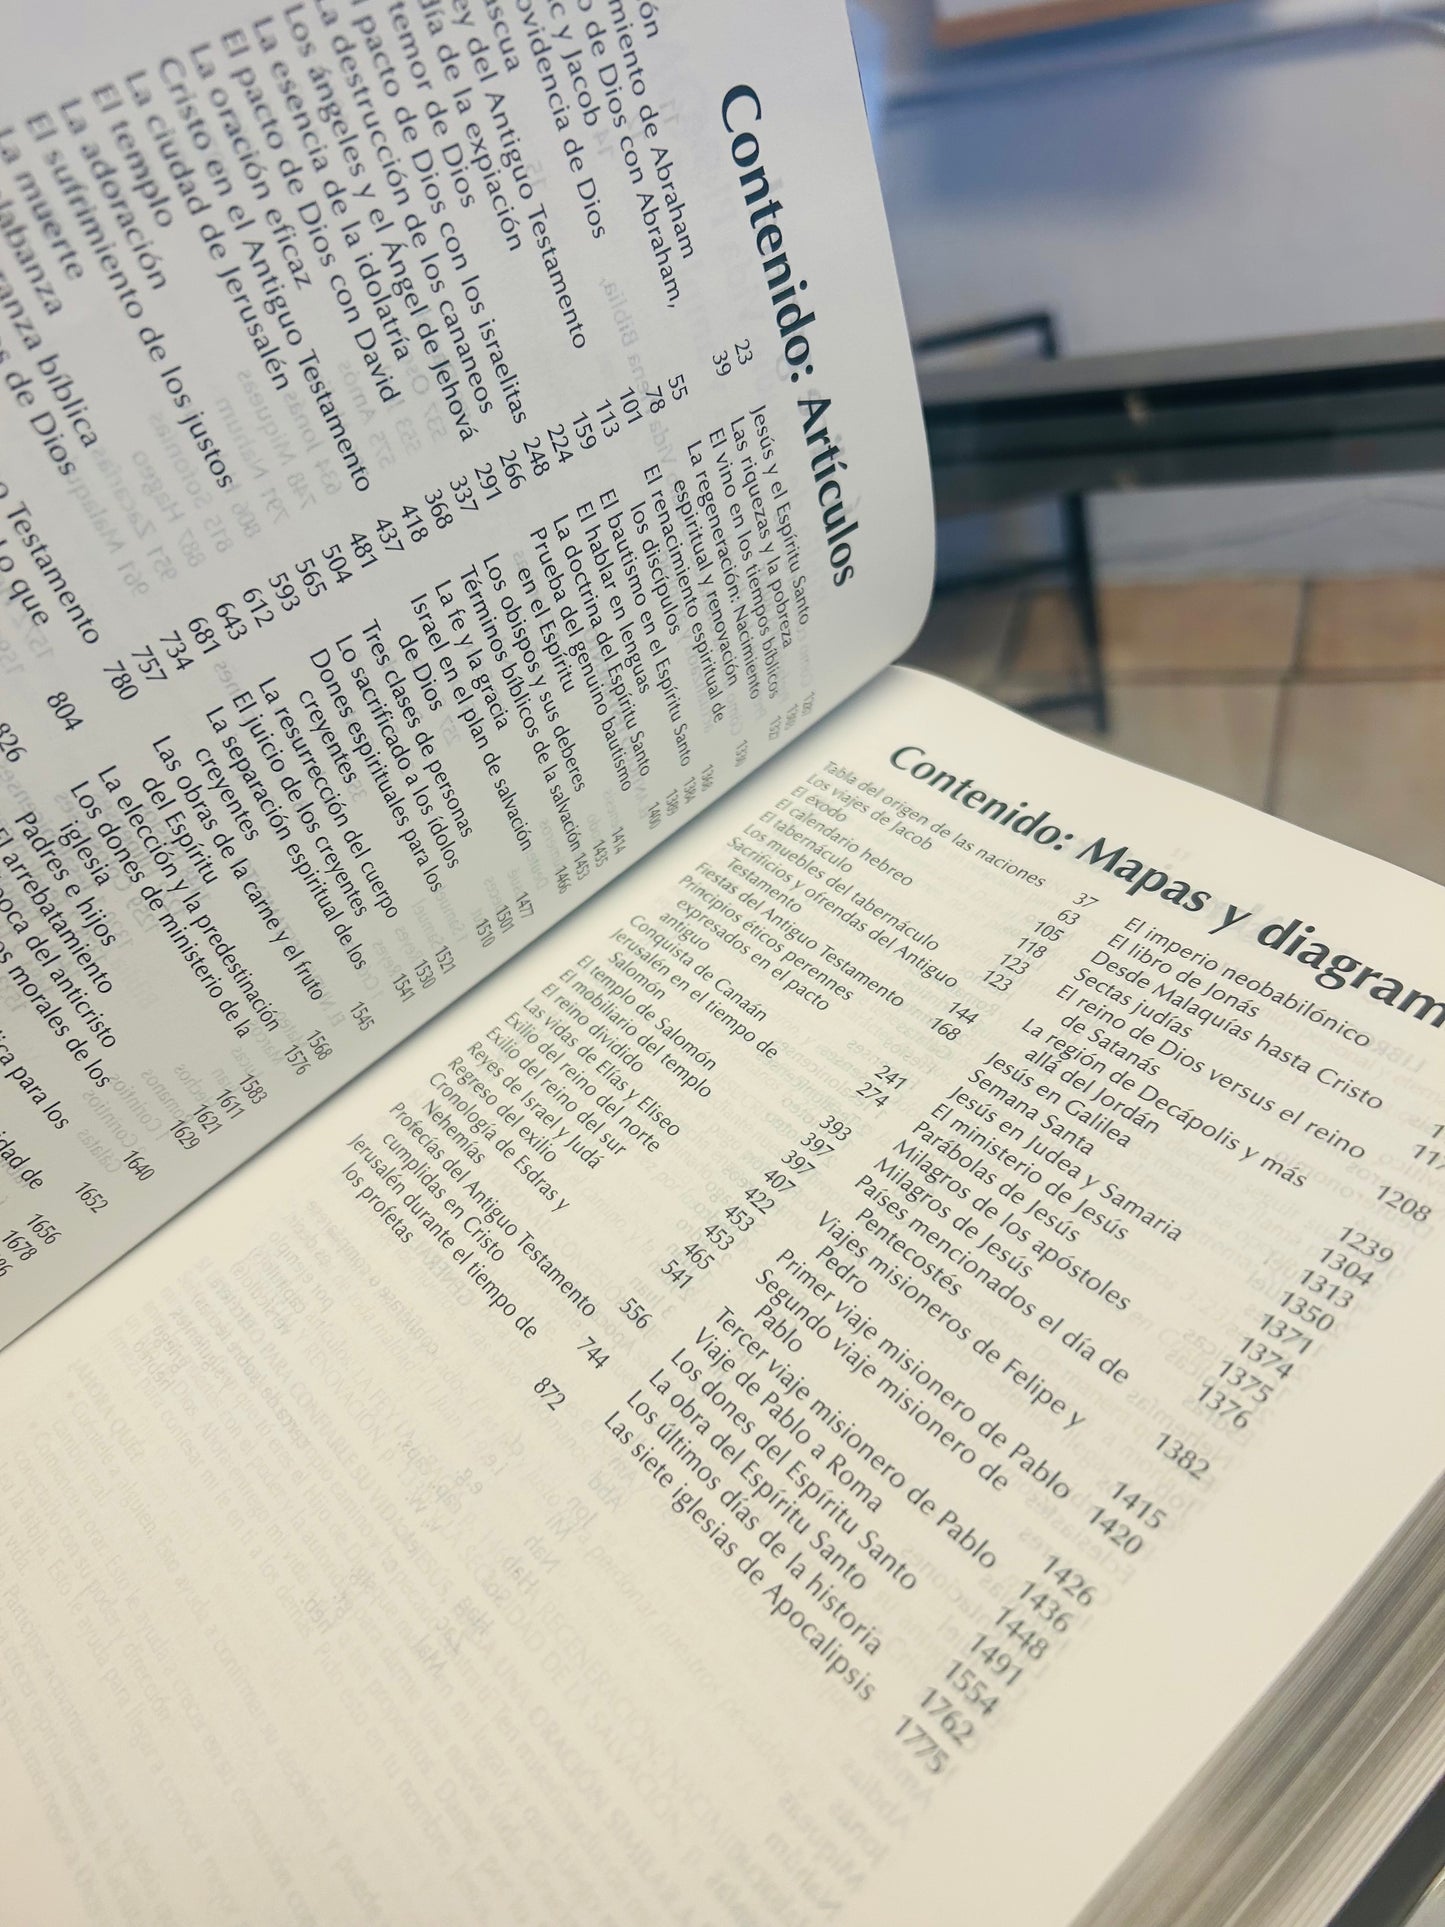 Contenido: Artículos
miento de Abraham 23
de Dios con Abraham,
y Jacob 39
de Dios 55
78
del Antiguo Testamento 101
día de la expiación 113
temor de Dios 159
pacto de Dios con los israelitas 224
La destrucción de los cananeos 248
Los ángeles y el Ángel de Jehová 266
La esencia de la idolatría 291
El pacto de Dios con David 337
La oración eficaz 368
Cristo en el Antiguo Testamento 418
La ciudad de Jerusalén 437
El templo 481
La adoración 504
El sufrimiento de los justos 565
La muerte 593
612
bíblica 643
de Dios 681
734
757
Testamento 780
Lo que
804
826
Jesús y el Espíritu Santo
Las riquezas y la pobreza
El vino en los tiempos bíblicos
La regeneración: Nacimiento
espiritual y renovación
El renacimiento espiritual de
los discípulos
El bautismo en el Espíritu Santo 1384
El hablar en lenguas 1389
La doctrina del Espíritu Santo 1400
Prueba del genuino bautismo
en el Espíritu 1414
Los obispos y sus deberes 1435
Términos bíblicos de la salvación 1453
La fe y la gracia 1466
Israel en el plan de salvación
de Dios 1477
Tres clases de personas 1501
Lo sacrificado a los ídolos 1510
Dones espirituales para los
creyentes 1521
La resurrección del cuerpo 1530
El juicio de los creyentes 1541
La separación espiritual de los
creyentes 1545
Las obras de la carne y el fruto
del Espíritu 1568
La elección y la predestinación 1576
Los dones de ministerio de la
iglesia 1583
Padres e hijos 1611
El arrebatamiento 1621
del anticristo 1629
morales de los
1640
para los
1652
de
1656
1678
Contenido: Mapas y diagram
Tabla del origen de las naciones 37
Los viajes de Jacob 63
El exodo 105
El calendario hebreo 118
El tabernáculo 123
Los muebles del tabernáculo 123
Sacrificios y ofrendas del Antiguo
Testamento 144
Fiestas del Antiguo Testamento 168
Principios éticos perennes
expresados en el pacto
antiguo 241
Conquista de Canaán 274
Jerusalén en el tiempo de
Salomón 393
El templo de Salomón 397
El mobiliario del templo 397
El reino dividido 407
Las vidas de Elías y Eliseo 422
Exilio del reino del norte 453
Exilio del reino del sur 453
Reyes de Israel y Judá 465
Regreso del exilio 541
Cronología de Esdras y
Nehemías 556
Profecías del Antiguo Testamento
cumplidas en Cristo 744
Jerusalén durante el tiempo de
los profetas 872
El imperio neobabilónico
El libro de Jonás
Desde Malaquías hasta Cristo
Sectas judías
El reino de Dios versus el reino
de Satanás 1208
La región de Decápolis y más
allá del Jordán 1239
Jesús en Galilea 1304
Semana Santa 1313
Jesús en Judea y Samaria 1350
El ministerio de Jesús 1371
Parábolas de Jesús 1374
Milagros de los apóstoles 1375
Milagros de Jesús 1376
Países mencionados el día de
Pentecostés 1382
Viajes misioneros de Felipe y
Pedro 1415
Primer viaje misionero de Pablo 1420
Segundo viaje misionero de
Pablo 1426
Tercer viaje misionero de Pablo 1436
Viaje de Pablo a Roma 1448
Los dones del Espíritu Santo 1491
La obra del Espíritu Santo 1554
Los últimos días de la historia 1762
Las siete iglesias de Apocalipsis 1775